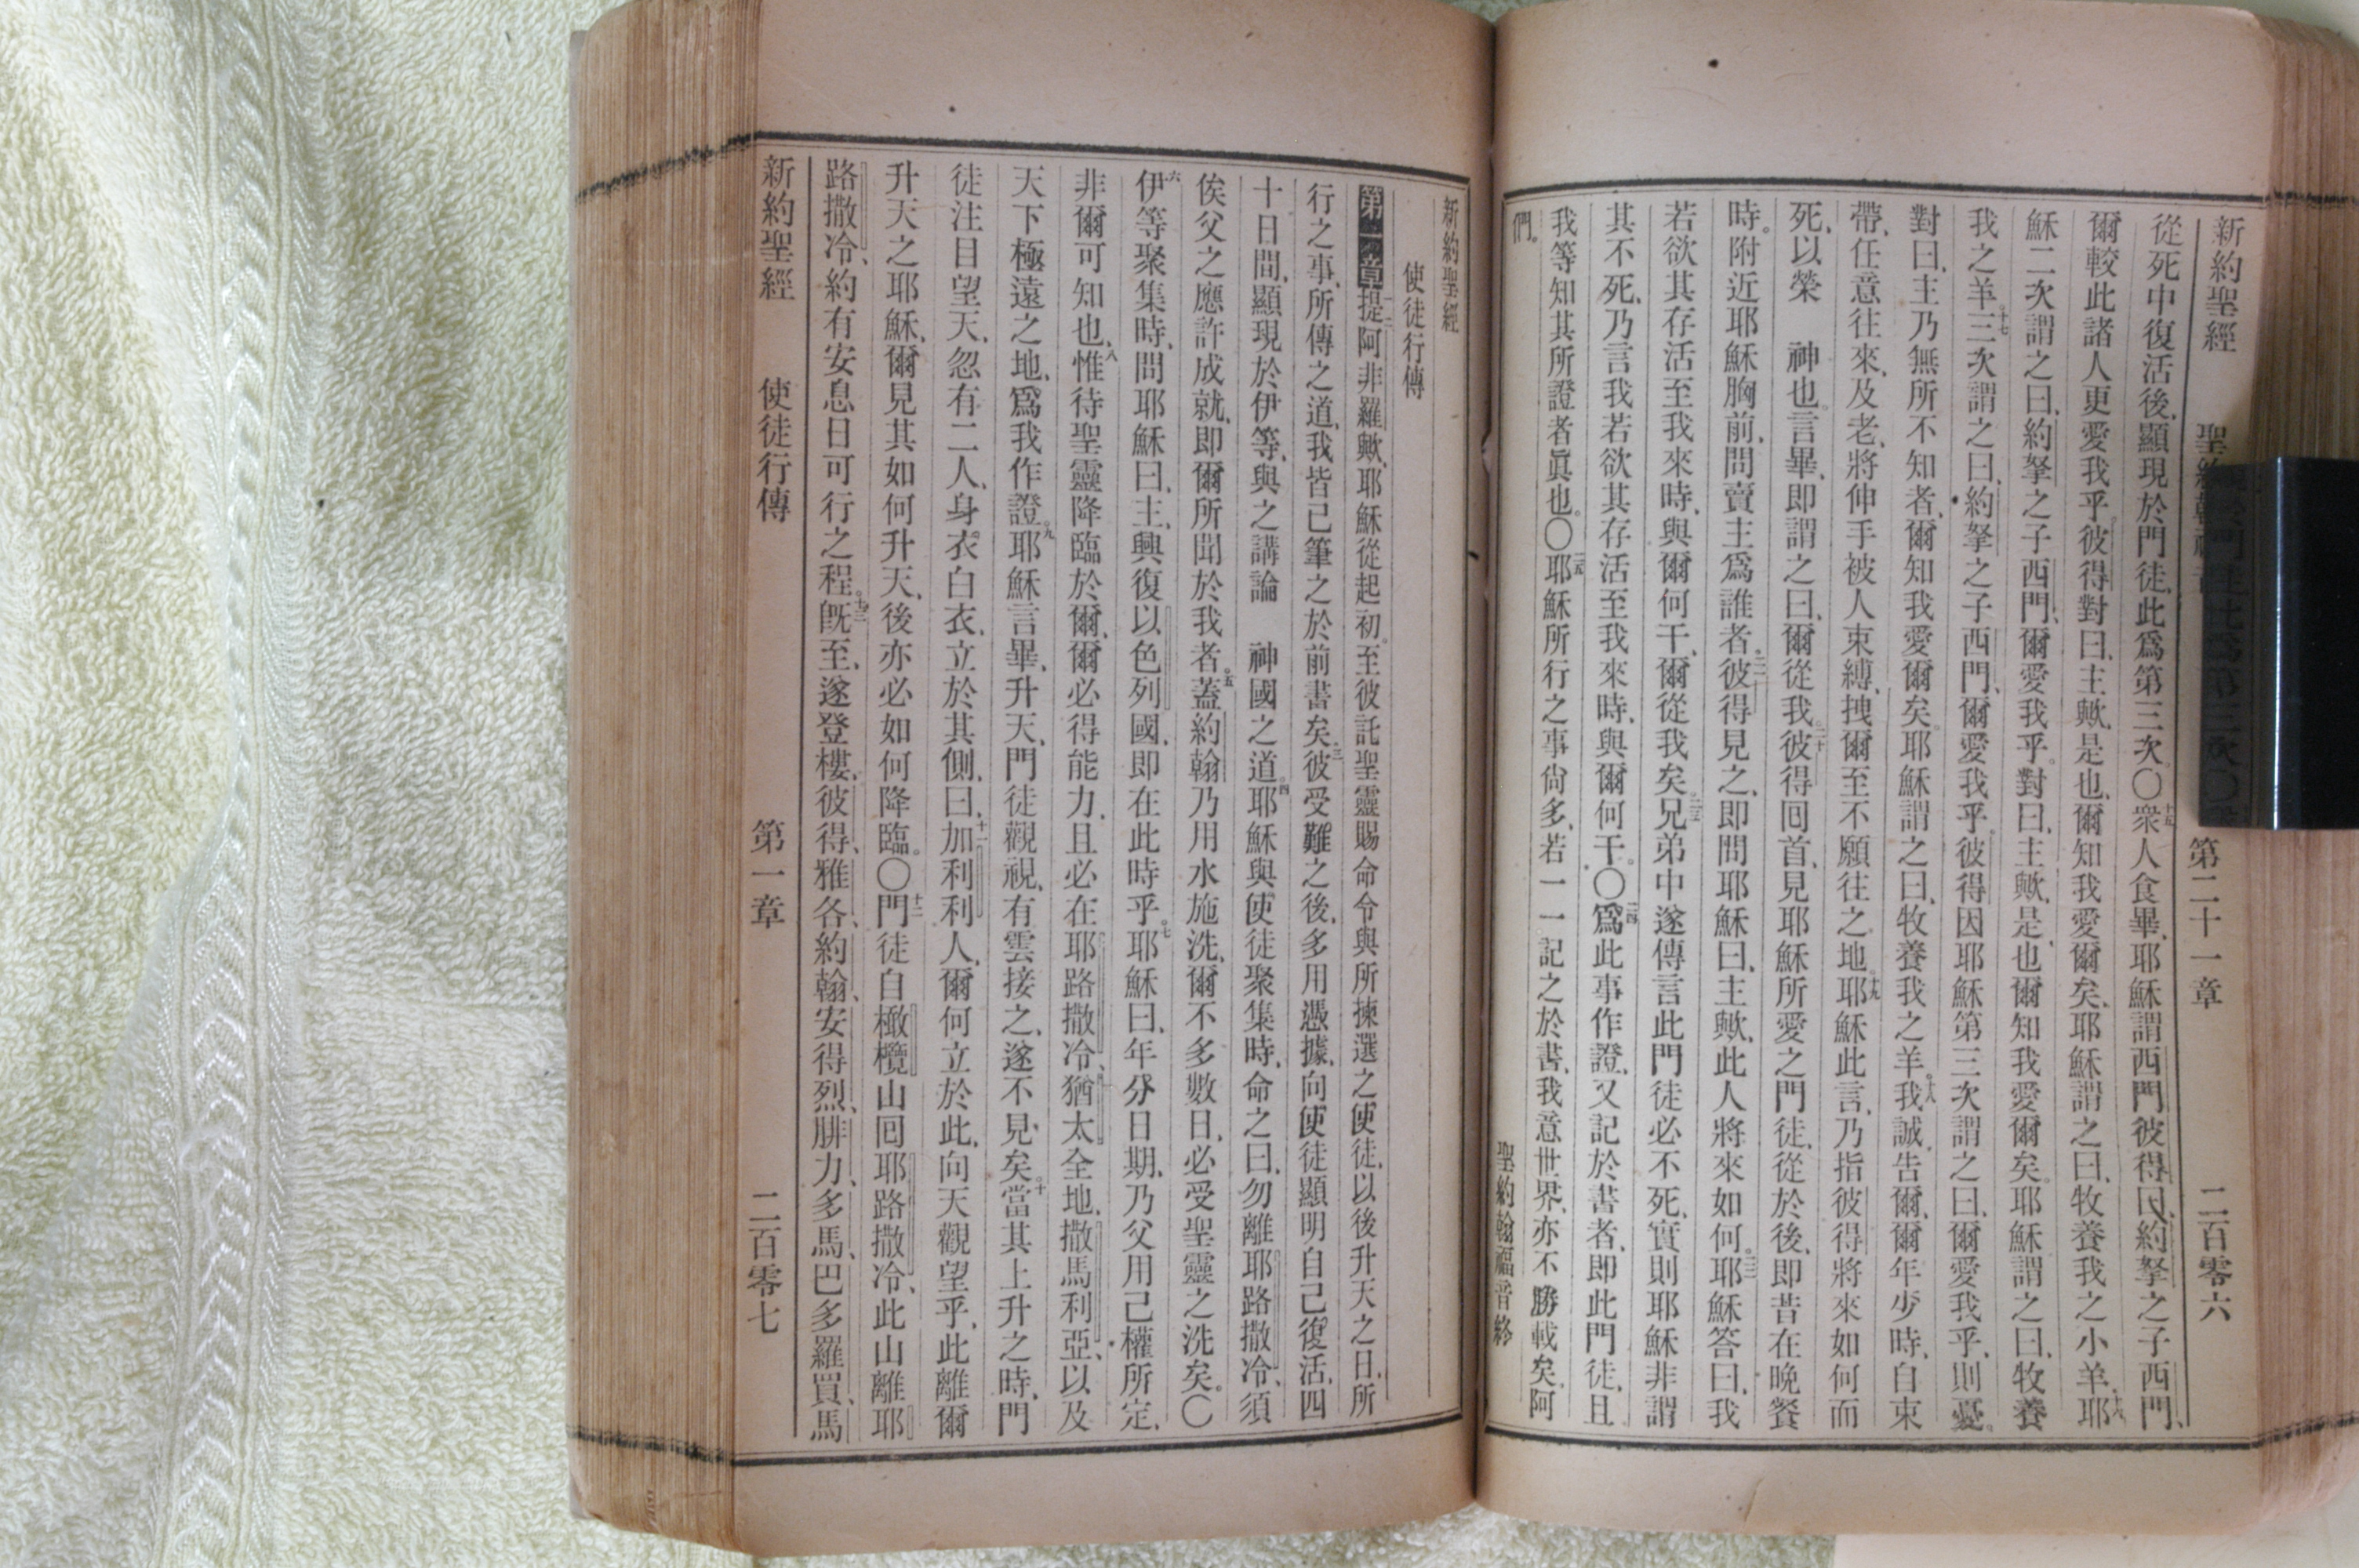 新約聖經 第二十一章 二百零六
從死中復活後、顯現於門徒、此爲第三次。〇十五衆人食畢、耶穌謂西門彼得曰、約拏之子西門、
爾較此諸人更愛我乎。彼得對曰、主歟、是也、爾知我愛爾矣、耶穌謂之曰、牧養我之小羊。十六耶
穌二次謂之曰、約拏之子西門、爾愛我乎。對曰、主歟、是也、爾知我愛爾矣。耶穌謂之曰、牧養
我之羊。十七三次謂之曰、約拏之子西門、爾愛我乎。彼得因耶穌第三次謂之曰、爾愛我乎、則憂。
對曰、主乃無所不知者、爾知我愛爾矣。耶穌謂之曰、牧養我之羊。十八我誠告爾、爾年少時、自束
帶、任意往來、及老、將伸手被人束縛、拽爾至不願往之地。十九耶穌此言、乃指彼得將來如何而
死、以榮 神也。言畢、即謂之曰、爾從我。二十彼得回首、見耶穌所愛之門徒、從於後、即昔在晚餐
時。附近耶穌胸前、問賣主爲誰者。二一彼得見之、即問耶穌曰、主歟、此人將來如何。二二耶穌答曰、我
若欲其存活至我來時、與爾何干、爾從我矣。二三兄弟中遂傳言此門徒必不死、實則耶穌非謂
其不死、乃言我若欲其存活至我來時、與爾何干。〇二四爲此事作證、又記於書者、即此門徒、且
我等知其所證者眞也。〇二五耶穌所行之事尙多、若一一記之於書、我意世界、亦不勝載矣、阿
們。 聖約翰福音終
新約聖經
使徒行傳
第一章一二提阿非羅歟、耶穌從起初。至彼託聖靈賜命令與所揀選之使徒、以後升天之日、所
行之事、所傳之道、我皆已筆之於前書矣。三彼受難之後、多用憑據、向使徒顯明自己復活、四
十日間、顯現於伊等、與之講論 神國之道。四耶穌與使徒聚集時、命之曰、勿離耶路撒冷、須
俟父之應許成就、即爾所聞於我者。五蓋約翰乃用水施洗、爾不多數日、必受聖靈之洗矣。〇
六伊等聚集時、問耶穌曰、主、興復以色列國、即在此時乎。七耶穌曰、年分日期、乃父用己權所定、
非爾可知也、八惟待聖靈降臨於爾、爾必得能力、且必在耶路撒冷、猶太全地、撒馬利亞、以及
天下極遠之地、爲我作證。九耶穌言畢、升天、門徒觀視、有雲接之、遂不見矣。十當其上升之時、門
徒注目望天、忽有二人、身衣白衣、立於其側、曰、十一加利利人、爾何立於此、向天觀望乎、此離爾
升天之耶穌、爾見其如何升天、後亦必如何降臨。〇十二門徒自橄欖山回耶路撒冷、此山離耶
路撒冷、約有安息日可行之程。十三旣至、遂登樓、彼得、雅各、約翰、安得烈、腓力、多馬、巴多羅買、馬
新約聖經 使徒行傳 第一章 二百零七